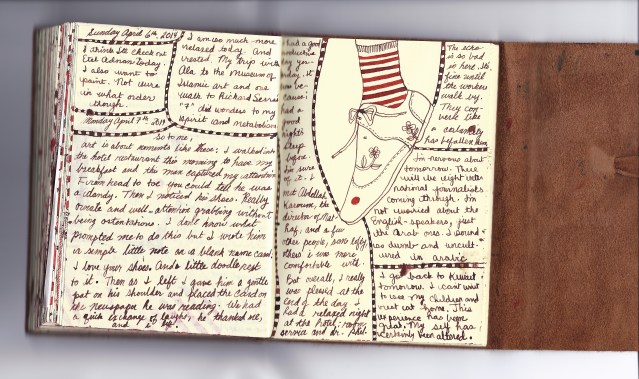 Sunday April 6th, 2014
I think I'll check out
Etel Adnan today.
I also want to
paint. Not sure
in what order
though.
I am so much more
relaxed today. And
rested. My trip with
Ala to the Museum of
Islamic art and our
walk to Richard Serra's
"7" did wonders to my
spirit and metabolism.
Monday April 7th, 2014
So to me,
art is about moments like these: I walked into
the hotel restaurant this morning to have my
breakfast and this man captured my attention
From head to toe you could tell he was
a dandy. Then I noticed his shoes. Really
ornate and well-attention grabbing without
being ostentatious. I don't know what
prompted me to do this but I wrote him
a simple little note on a blank name card.
I love your shoes. And a little doodle next
to it. Then as I left I gave him a gentle
pat on his shoulder and placed the card on
the newspaper he was reading. We had
a quick exchange of laughs, he thanked me,
and
I had a good
productive
day yes-
terday. It
was be-
cause I
had a
good
night's
sleep
before.
I'm sure
of it. I
met Abdellah
Karroum, the
director of Mat-
haf, and a few
other people, some lofty
others I was more
comfortable with.
But overall, I really
was pleased at the
end of the day. I
had a relaxed night
at the hotel: room
service and Dr. Phil.
The echo
is so bad
in here. It's
fine until
the workers
walk by.
They con-
verse like
a calamity
has befallen them
I'm nervous about
tomorrow. There
will be eight inter-
national journalists
coming through. I'm
not worried about the
English-speakers, just
the Arab ones. I sound
so dumb and uncult-
ured in Arabic
I go back to Kuwait
tomorrow. I can't wait
to see my children and
nest at home. This
experience has been
great. My self has
certainly been altered.